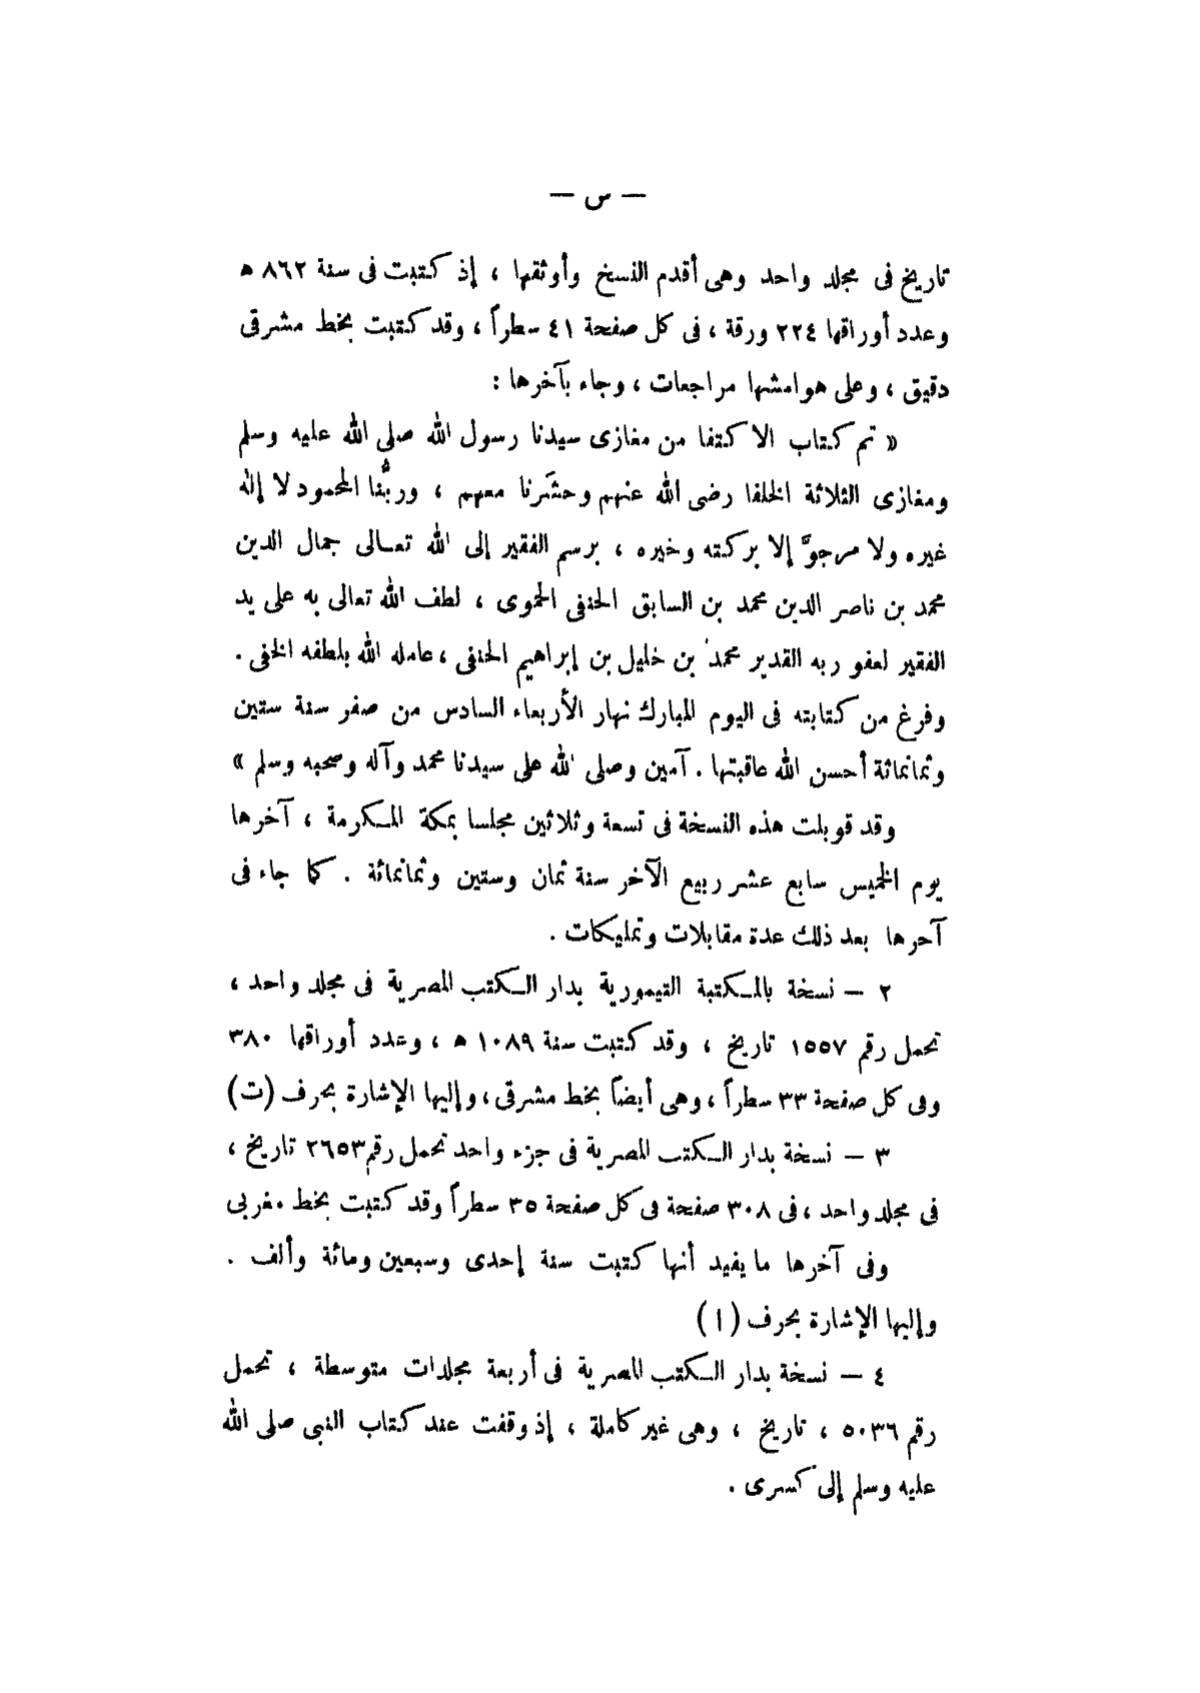 — س —
تاريخ فى مجلد واحد وهى أقدم النسخ وأوثقها ، إذ كتبت فى سنة ٨٦٢ ه
وعدد أوراقها ٢٢٤ ورقة ، فى كل صفحة ٤١ سطراً ، وقد كتبت بخط مشرقى
دقيق ، وعلى هوامشها مراجعات ، وجاء بآخرها :
« تم كتاب الاكتفا من مغازى سيدنا رسول الله صلى الله عليه وسلم
ومغازى الثلاثة الخلفا رضى الله عنهم وحشَرنا معهم ، وربُّنا المحمود لا إله
غيره ولا مرجوَّ إلا بركته وخيره ، برسم الفقير إلى الله تعالى جمال الدين
محمد بن ناصر الدين محمد بن السابق الحنفى الحموى ، لطف الله تعالى به على يد
الفقير لعفو ربه القدير محمد بن خليل بن إبراهيم الحنفى ، عامله الله بلطفه الخفى .
وفرغ من كتابته فى اليوم المبارك نهار الأربعاء السادس من صفر سنة ستين
وثمانمائة أحسن الله عاقبتها . آمين وصلى الله على سيدنا محمد وآله وصحبه وسلم »
وقد قوبلت هذه النسخة فى تسعة وثلاثين مجلسا بمكة المكرمة ، آخرها
يوم الخميس سابع عشر ربيع الآخر سنة ثمان وستين وثمانمائة . كما جاء فى
آحرها بعد ذلك عدة مقابلات وتمليكات .
٢ — نسخة بالمكتبة التيمورية بدار الكتب المصرية فى مجلد واحد ،
تحمل رقم ١٥٥٧ تاريخ ، وقد كتبت سنة ١٠٨٩ ه ، وعدد أوراقها ٣٨٠
وفى كل صفحة ٣٣ سطراً ، وهى أيضاً بخط مشرقى ، وإليها الإشارة بحرف (ت)
٣ — نسخة بدار الكتب المصرية فى جزء واحد تحمل رقم ٢٦٥٣ تاريخ ،
فى مجلد واحد ، فى ٣٠٨ صفحة فى كل صفحة ٣٥ سطراً وقد كتبت بخط مغربى
وفى آخرها ما يفيد أنها كتبت سنة إحدى وسبعين ومائة وألف .
وإليها الإشارة بحرف ( ا )
٤ — نسخة بدار الكتب المصرية فى أربعة مجلدات متوسطة ، تحمل
رقم ٥٠٣٦ ، تاريخ ، وهى غير كاملة ، إذ وقفت عند كتاب النبى صلى الله
عليه وسلم إلى كسرى .